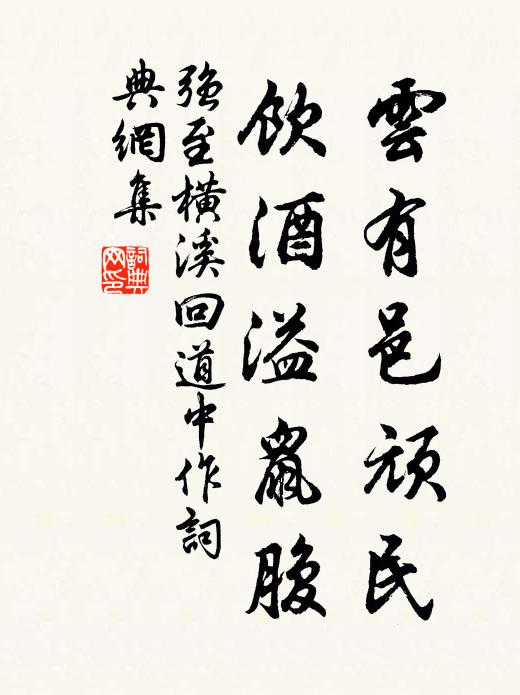 雲有邑頑民
飲酒溢鼠腹
強至橫溪回道中作詞
典網集
詞典網印